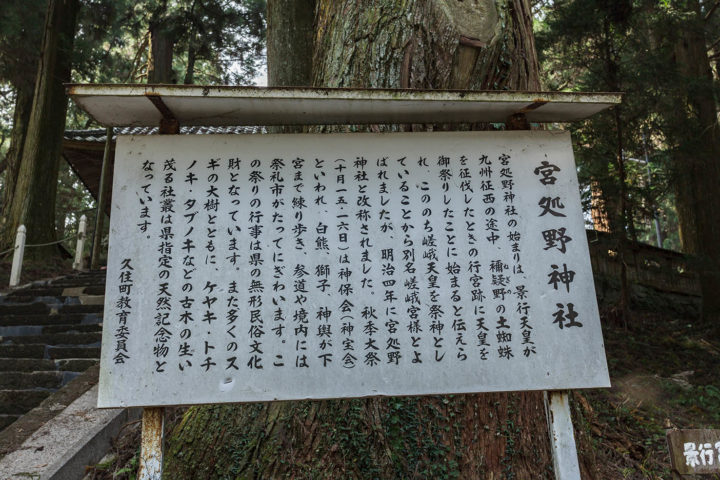 宮処野神社
宮処野神社の始まりは、景行天皇が
九州征西の途中、禰疑野の土蜘蛛
を征伐したときの行宮跡に天皇を
御祭りしたことに始まると伝えら
れ、こののち嵯峨天皇を祭神とし
ていることから別名嵯峨宮様とよ
ばれましたが、明治四年に宮処野
神社と改称されました。秋季大祭
(十月一五・一六日)は神保会(神宝会)
といわれ、白熊、獅子、神輿が下
宮まで練り歩き、参道や境内には
祭礼市がたってにぎわいます。こ
の祭りの行事は県の無形民俗文化
財となっています。また多くのス
ギの大樹とともに、ケヤキ・トチ
ノキ・タブノキなどの古木の生い
茂る社叢は県指定の天然記念物と
なっています。
久住町教育委員会
景行